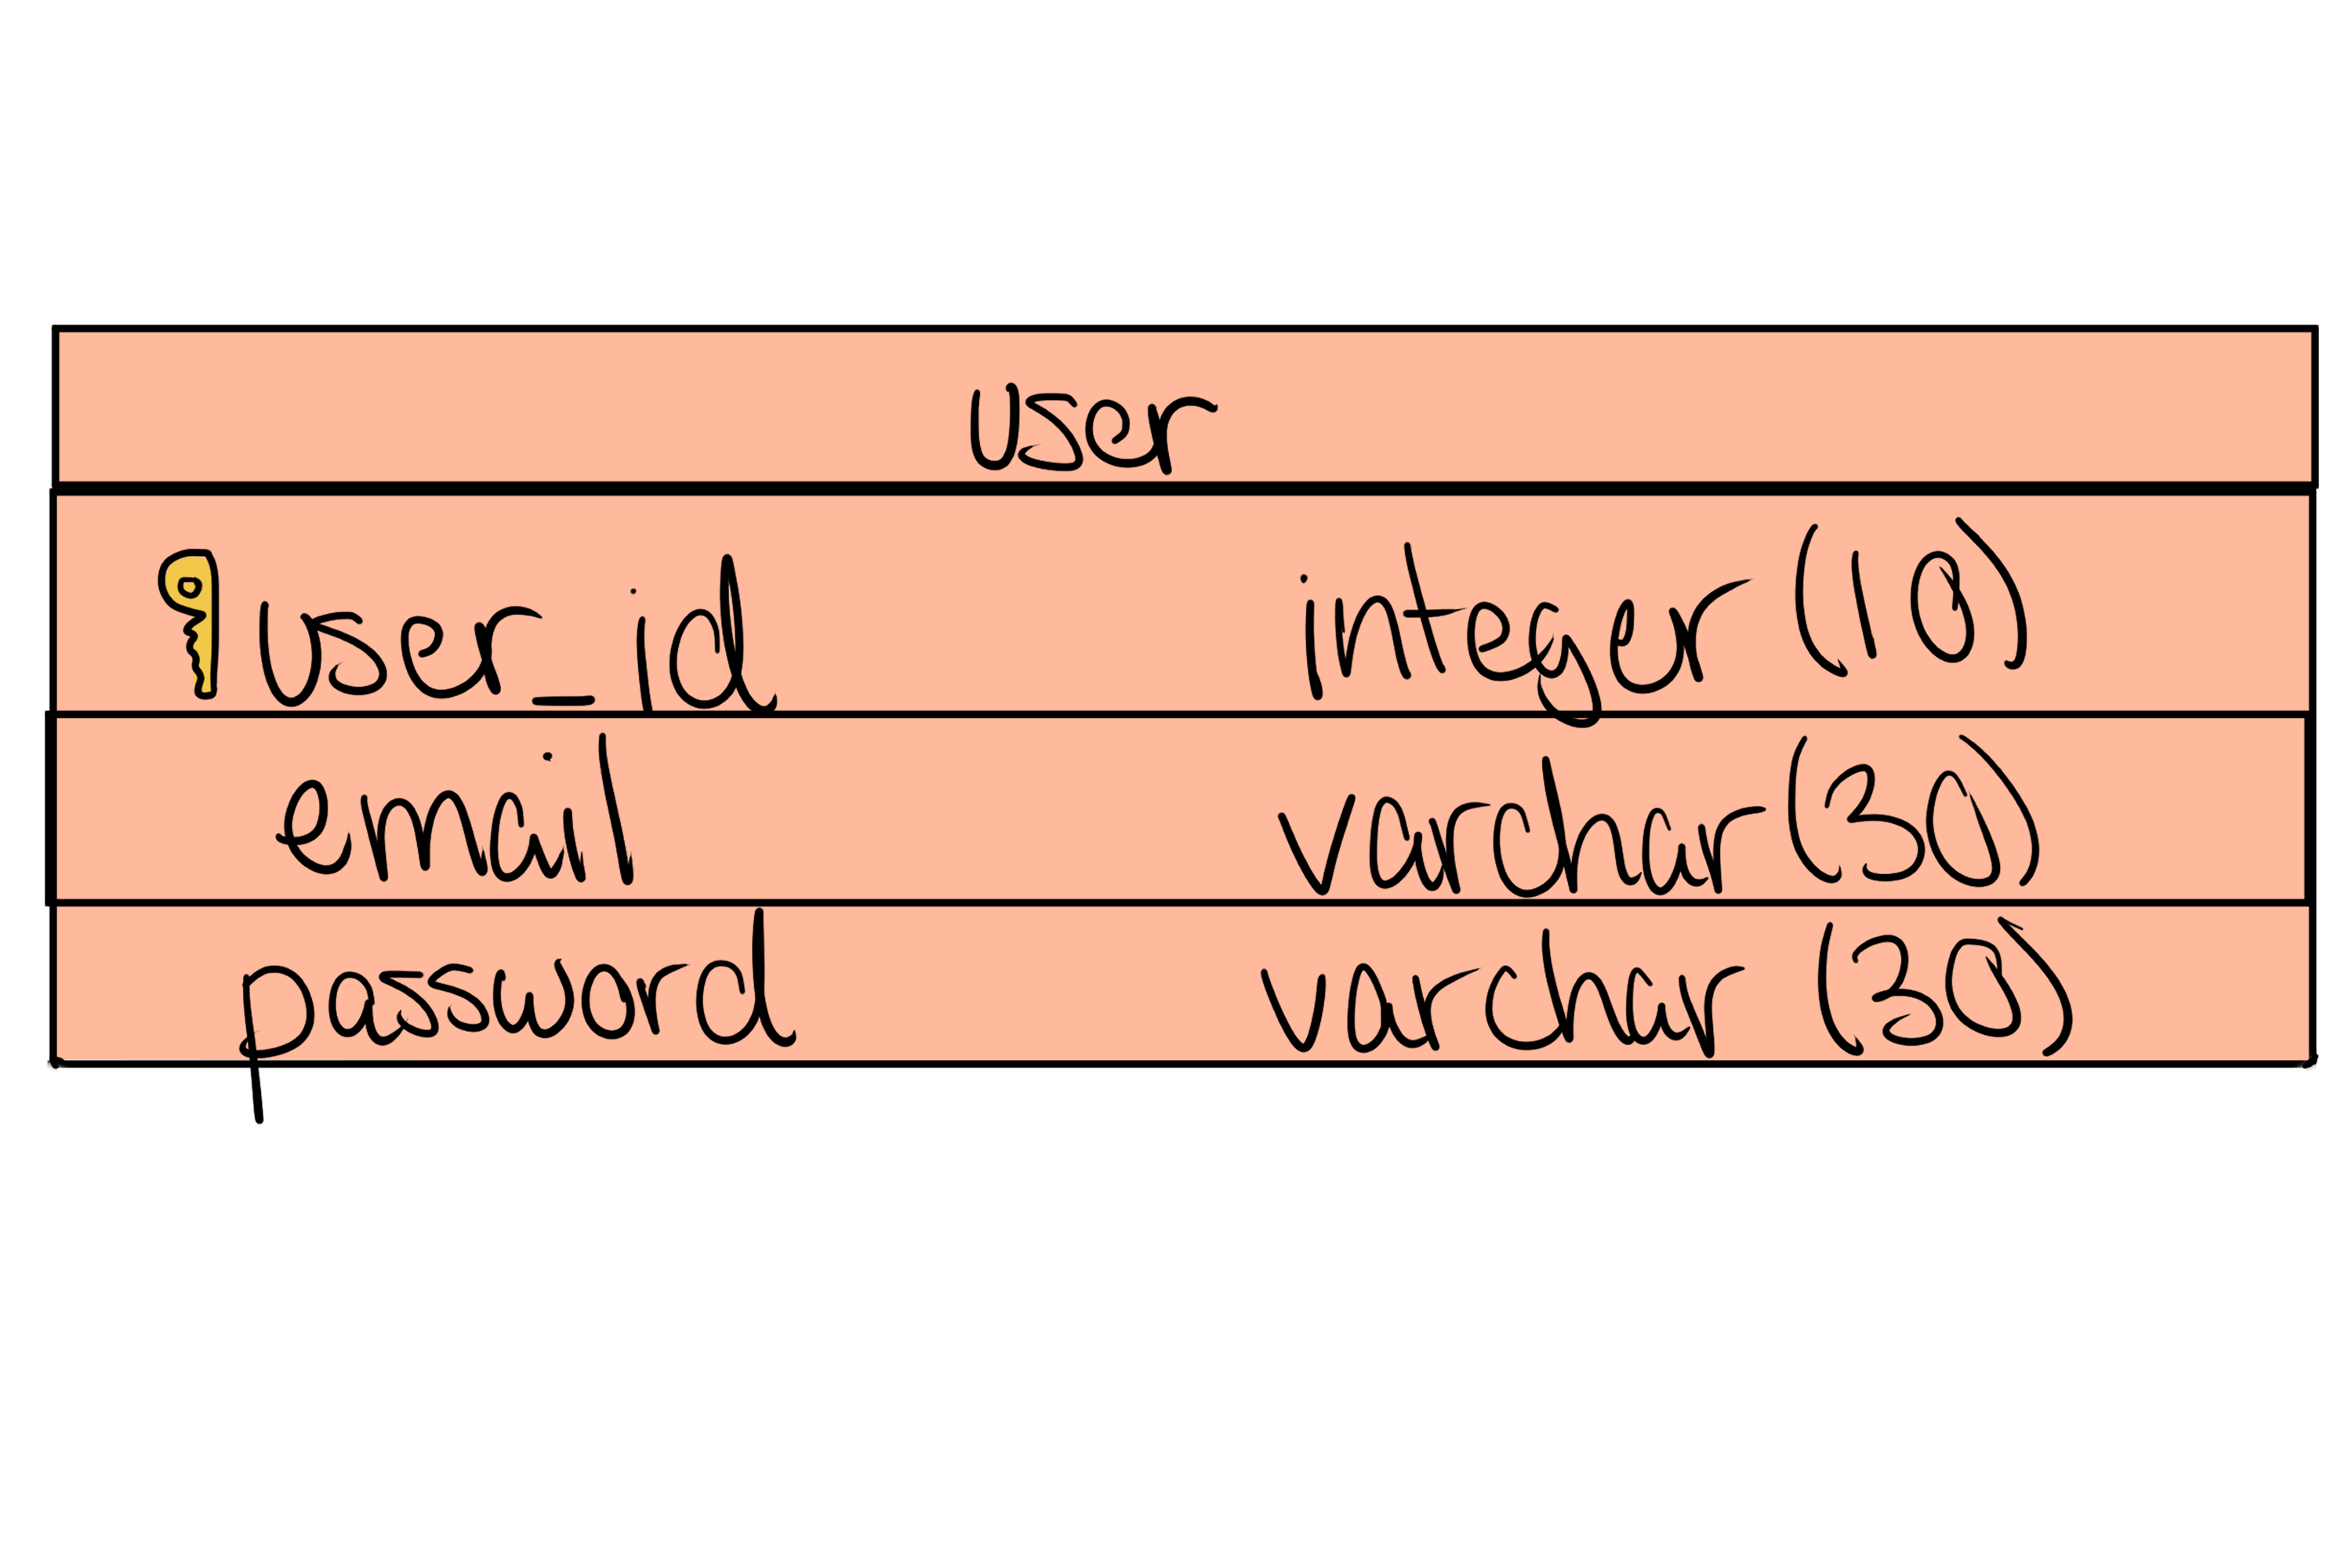 user
user_id integer (10)
email varchar (30)
password varchar (30)